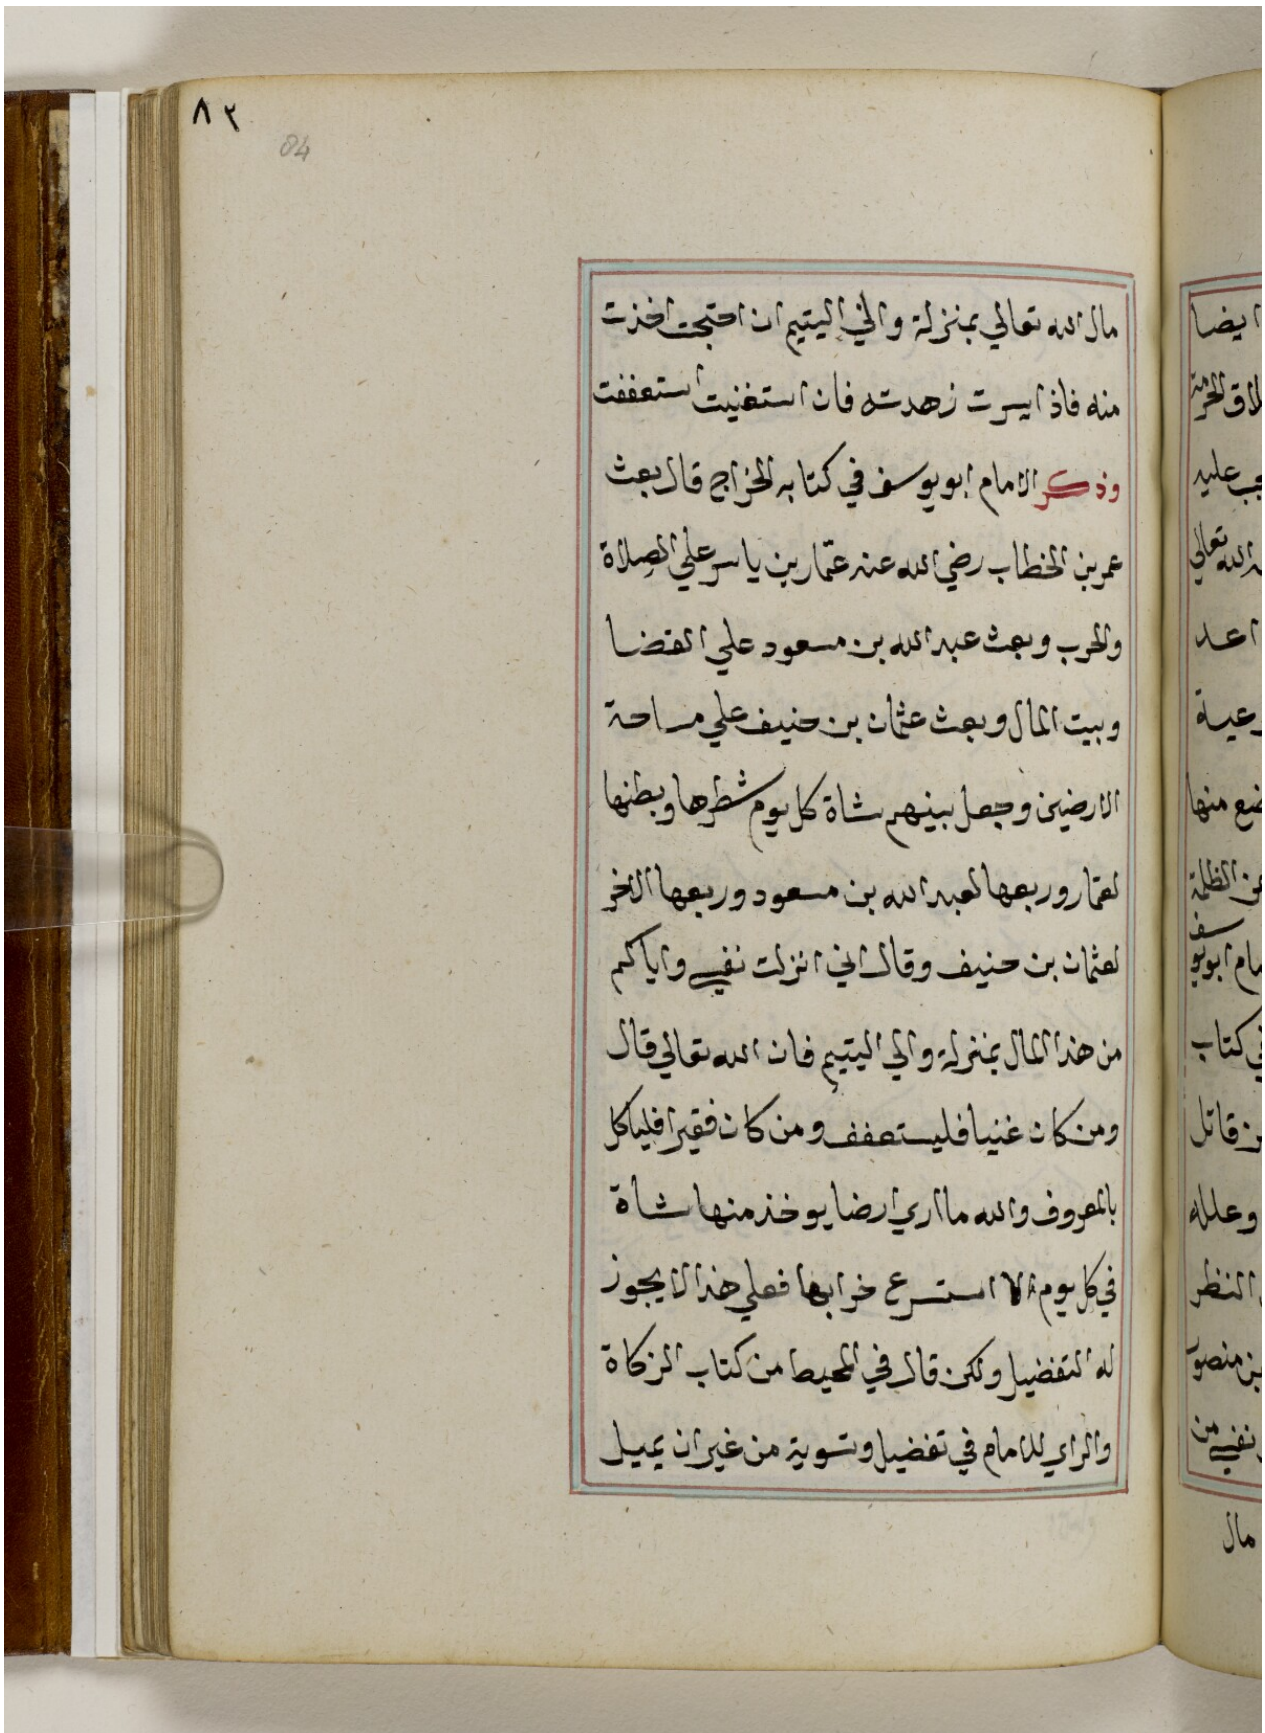 ٨٢
84
مال الله تعالي بمنزلة والي اليتيم ان احتجت اخذت
منه فاذا ايسرت زهدته فان استغنيت استعففت
وذكر الامام ابو يوسف في كتابه الخراج قال بعث
عمر بن الخطاب رضي الله عنه عمّار بن ياسر علي الصلاة
والحرب وبعث عبد الله بن مسعود علي القضا
وبيت المال وبعث عثمان بن حنيف علي مساحة
الارضين وجعل بينهم شاة كل يوم شطرها وبطنها
لعمّار وربعها لعبد الله بن مسعود وربعها الاخر
لعثمان بن حنيف وقال اني انزلت نفسي واياكم
من هذا المال بمنزلة والي اليتيم فان الله تعالي قال
ومن كان غنيا فليستعفف ومن كان فقيرا فلياكل
بالمعروف والله ما اري ارضا يوخذ منها شاة
في كل يوم الا استسرع خرابها فعلي هذا لا يجوز
له التفضيل ولكن قال في المحيط من كتاب الزكاة
والراي للامام في تفضيل وتسوية من غير ان يميل
ايضا
عليه
الله تعالي
اعد
منها
الظلمة
ابو يوسف
كتاب
قاتل
وعلله
النظر
بن منصور
من
مال